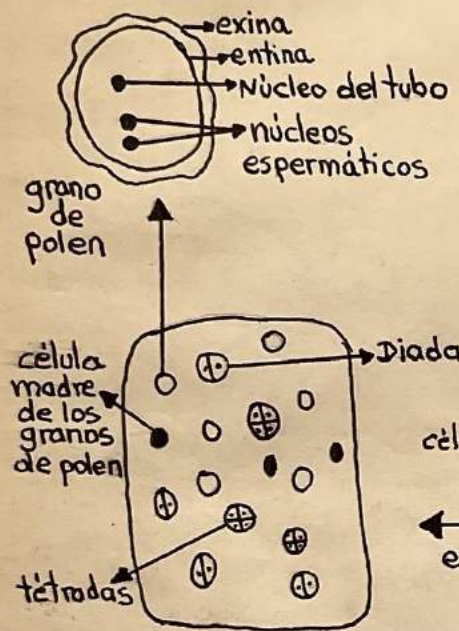 exina
entina
Núcleo del tubo
núcleos
espermáticos
grano
de
polen
Diada
célula
madre
de los
granos
de polen
cél
e
tétradas